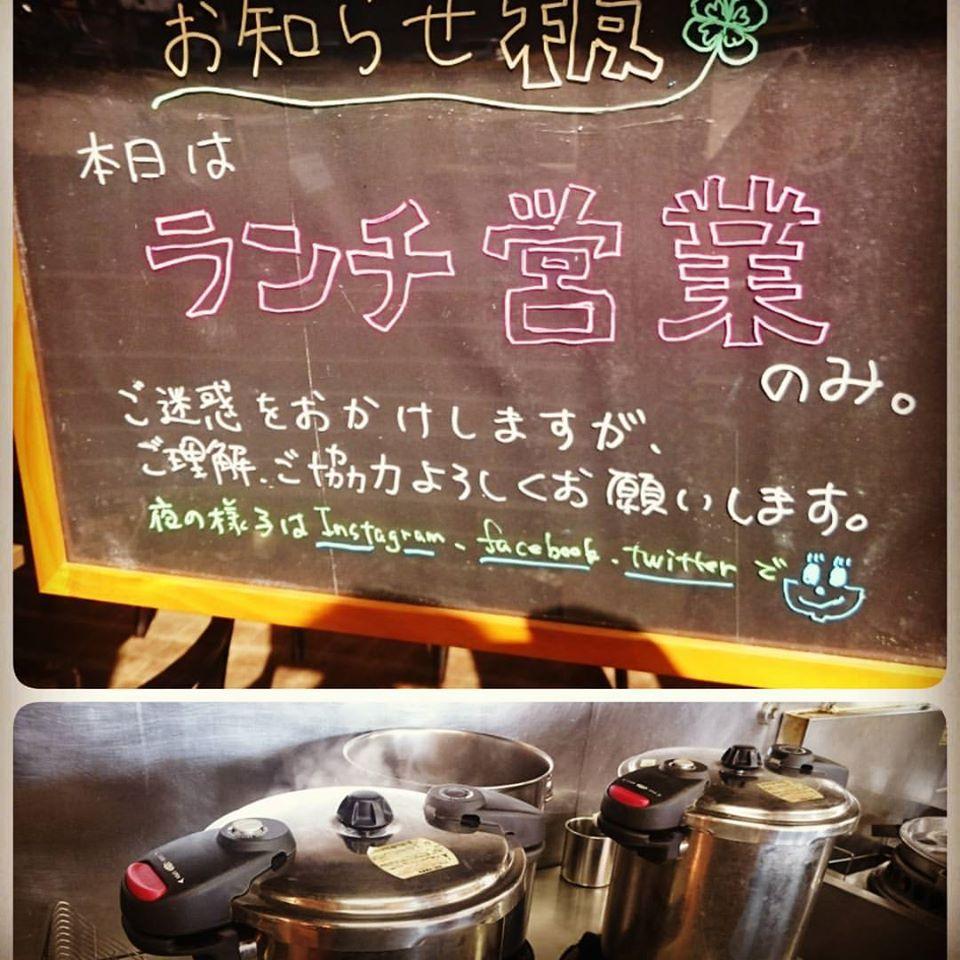 お知らせ板
本日は
ランチ営業
のみ。
ご迷惑をおかけしますが、
ご理解、ご協力よろしくお願いします。
夜の様子はInstagram、facebook、twitterで